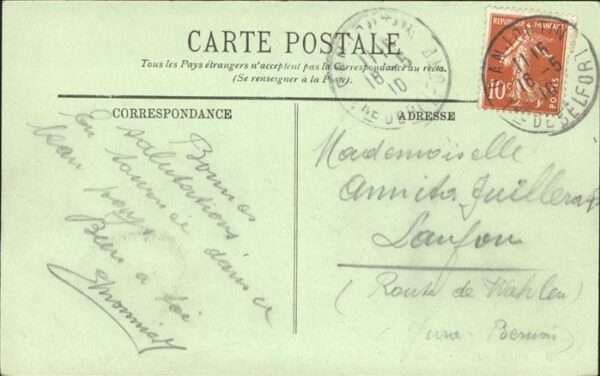 CARTE POSTALE
Tous les Pays étrangers n'acceptent pas la Correspondance au recto.
(Se renseigner à la Poste).
CORRESPONDANCE
ADRESSE
Bonnes
salutations
En tournée dans ce
beau pays
Bien à toi
10c
11 15
16 5
10
DE BELFORT
16 5
10
Mademoiselle
Annita Juillerat
Laufon
(Route de Wahlen)
Jura-Bernois